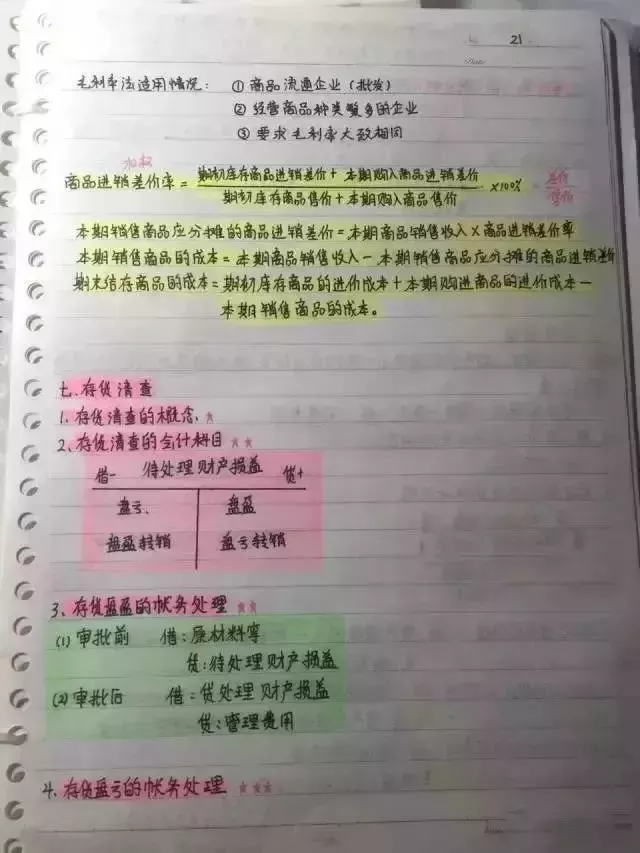 21
毛利率法适用情况：① 商品流通企业（批发）
② 经营商品种类繁多的企业
③ 要求毛利率大致相同
加权
商品进销差价率 = 期初库存商品进销差价 + 本期购入商品进销差价
期初库存商品售价 + 本期购入商品售价
×100%
差价
售价
本期销售商品应分摊的商品进销差价 = 本期商品销售收入 × 商品进销差价率
本期销售商品的成本 = 本期商品销售收入 - 本期销售商品应分摊的商品进销差价
期末结存商品的成本 = 期初库存商品的进价成本 + 本期购进商品的进价成本 -
本期销售商品的成本。
七、存货清查
1. 存货清查的概念. ★
2、存货清查的会计科目 ★★
借- 待处理财产损益 贷+
盘亏、 盘盈
盘盈转销 盘亏转销
3、存货盘盈的帐务处理 ★★
(1) 审批前 借：原材料等
贷：待处理财产损益
(2) 审批后 借：贷处理财产损益
贷：管理费用
4. 存货盘亏的帐务处理 ★★★